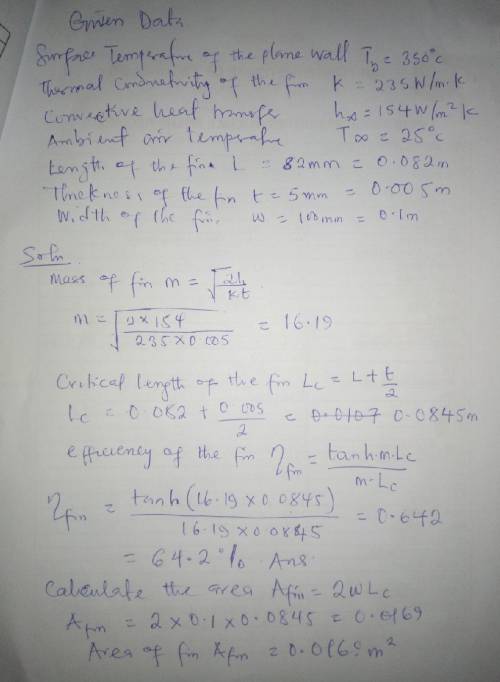 Given Data
Surface Temperature of the plane wall T_b = 350°C
Thermal Conductivity of the fin k = 235 W/m·k
Convective heat transfer h∞ = 154 W/m² k
Ambient air temperature T∞ = 25°C
Length of the fin L = 82mm = 0.082m
Thickness of the fin t = 5mm = 0.005m
Width of the fin. w = 100mm = 0.1m
Soln
Mass of fin m = √(2h/kt)
m = √(2×154/235×0.005) = 16.19
Critical length of the fin Lc = L + t/2
Lc = 0.082 + 0.005/2 = 0.0107 0.0845m
efficiency of the fin η_fin = tanh·m·Lc/m·Lc
η_fin = tanh(16.19×0.0845)/16.19×0.0845 = 0.642
= 64.2% Ans.
Calculate the area A_fin = 2wLc
A_fin = 2×0.1×0.0845 = 0.0169
Area of fin A_fin = 0.0169 m²